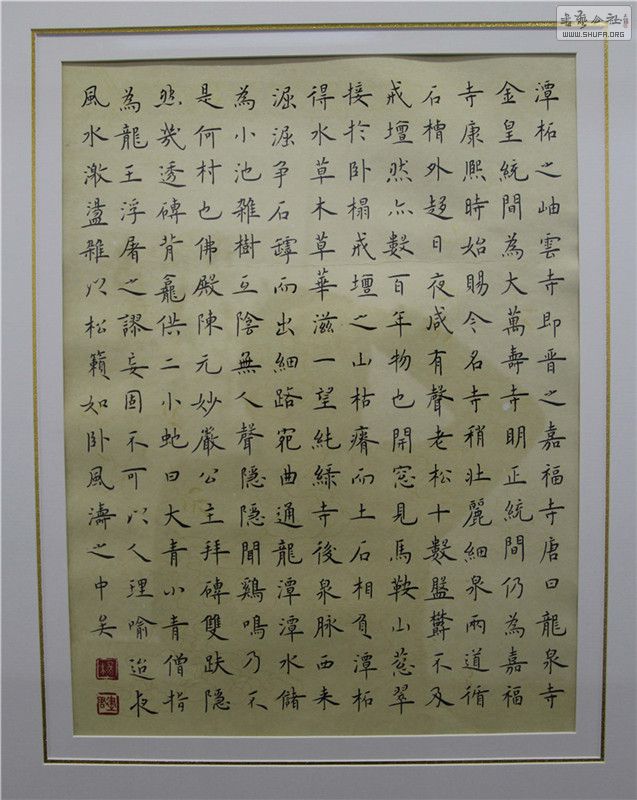 潭柘之岫雲寺即晋之嘉福寺唐曰龍泉寺
金皇統間為大萬壽寺明正統間仍為嘉福
寺康熙時始賜今名寺稍壯麗細泉兩道循
石槽外趍日夜咸有聲老松十數盤鬱不及
戒壇然亦數百年物也開窓見馬鞍山蔥翠
接於卧榻戒壇之山枯瘠而土石相負潭柘
得水草木草華滋一望純綠寺後泉脉西来
淈淈争石罅而出細路宛曲通龍潭潭水儲
為小池雜樹互陰無人聲隱隱聞鷄鳴乃不
是何村也佛殿陳元妙嚴公主拜磚雙趺隱
然幾透磚背龕供二小虵曰大青小青僧指
為龍王浮屠之謬妄固不可以人理喻迨夜
風水激盪雜以松籟如卧風濤之中矣
书艺公社
WWW.SHUFA.ORG